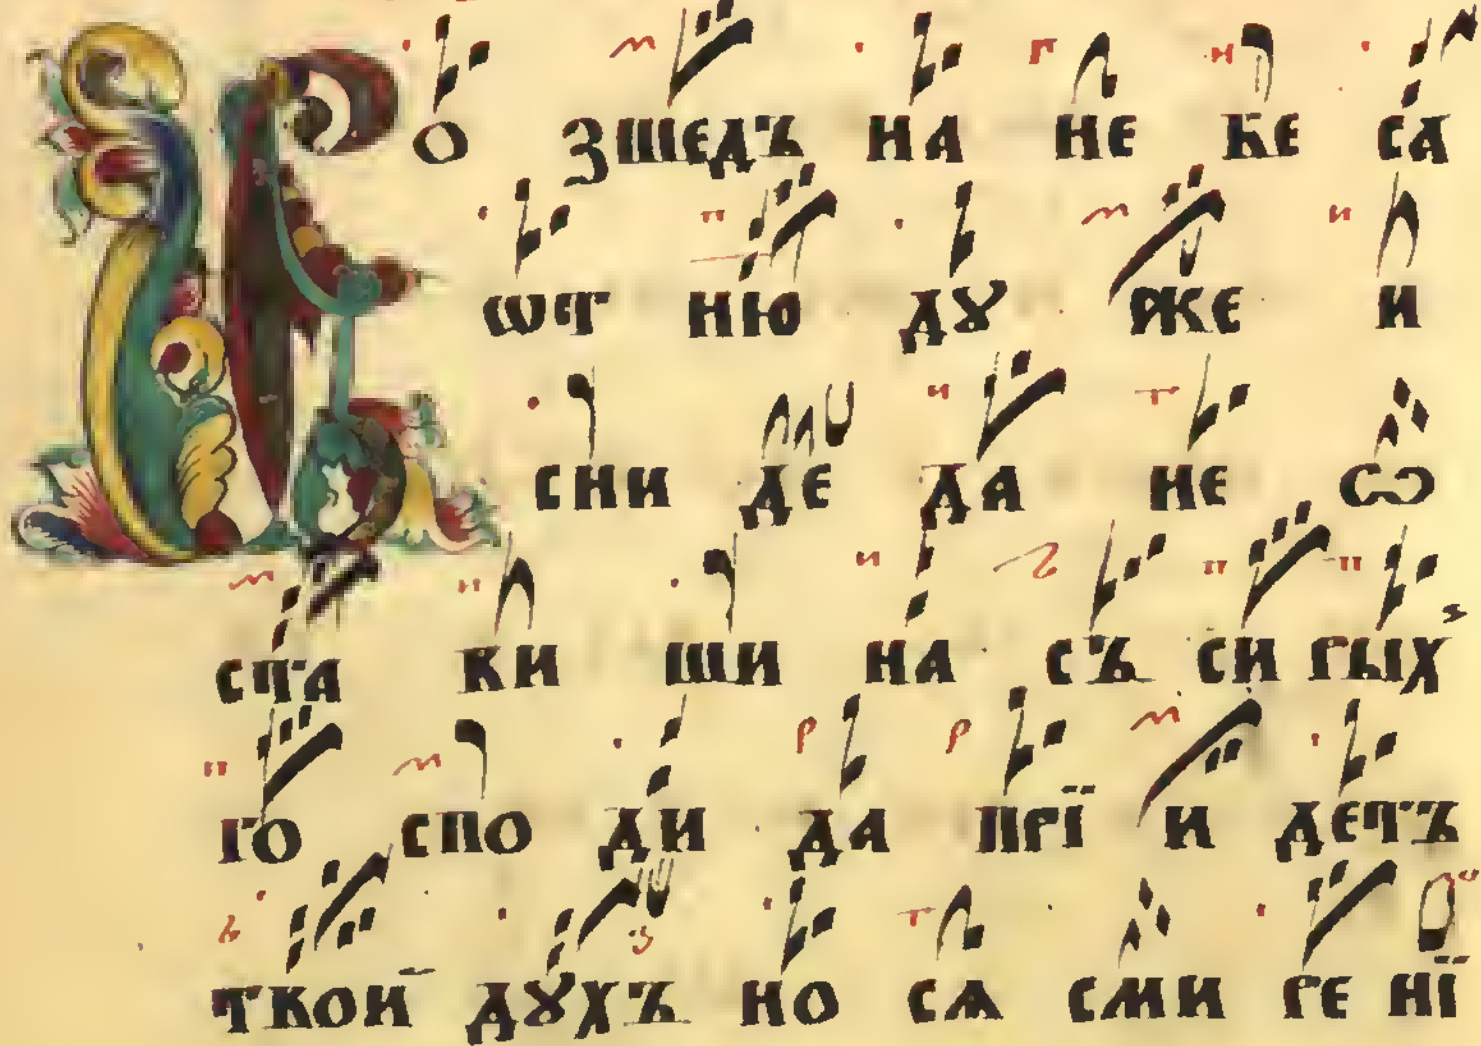 ВО ЗШЕДЪ НА НЕ БЕ СА
ѠТ НЮ ДꙊ ЖЕ И
СНИ ДЕ ДА НЕ Ѡ
СТА ВИ ШИ НА СЪ СИ РЫХ
ГО СПО ДИ ДА ПРЇ И ДЕТЪ
ТВОЙ ДꙊХЪ НО СѦ СМИ РЕ НЇ